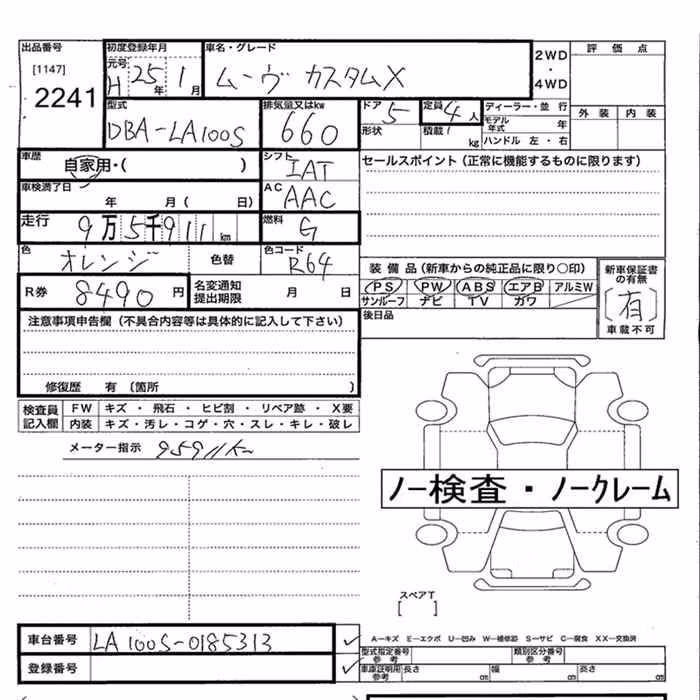 出品番号 初度登録年月 車名・グレード 2WD 評価点
[1147] 元号 H 25年 1月 ムーヴ カスタムX ・
2241 4WD
型式 排気量又はkw ドア 5 定員 4人 ディーラー・並行 外装 内装
DBA-LA100S 660 形状 積載 kg モデル年式 年
ハンドル 左・右
車歴 自家用・( ) シフト IAT セールスポイント(正常に機能するものに限ります)
車検満了日 年 月( 日) AC AAC
走行 9万5千911km 燃料 G
色 オレンジ 色替 色コード R64 装備品(新車からの純正品に限り○印) 新車保証書の有無
R券 8490円 名変通知提出期限 月 日 PS PW ABS エアB アルミW [有]
サンルーフ ナビ TV ガワ 車載不可
注意事項申告欄(不具合内容等は具体的に記入して下さい) 後日品
修復歴 有(箇所 )
検査員記入欄 FW キズ・飛石・ヒビ割・リペア跡・X要
内装 キズ・汚レ・コゲ・穴・スレ・キレ・破レ
メーター指示 95911K
ノー検査・ノークレーム
スペアT
[ ]
車台番号 LA100S-0185313 A−キズ E−エクボ U−凹み W−補修跡 S−サビ C−腐食 XX−交換済
登録番号 型式指定番号 参考 類別区分番号 参考
車庫証明用参考 長さ cm 幅 cm 高さ cm